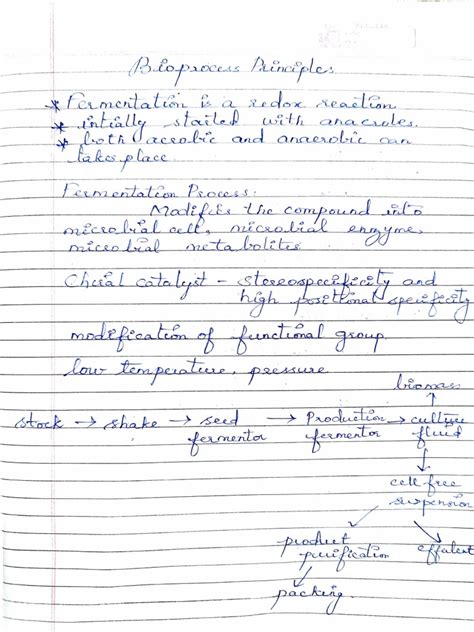 Bioprocess Principles
* Fermentation is a redox reaction
* intially started with anaerobes.
* both aerobic and anaerobic can
takes place.
Fermentation Process:
Modifies the compound into
microbial cell, microbial enzyme,
microbial metabolites.
Chiral catalyst - stereospecificity and
high positional specificity
modification of functional group.
low temperature, pressure
biomass
stock → shake → seed → Production → culture
fermentor fermentor fluid
cell free
suspension
product effulent
purification
packing.